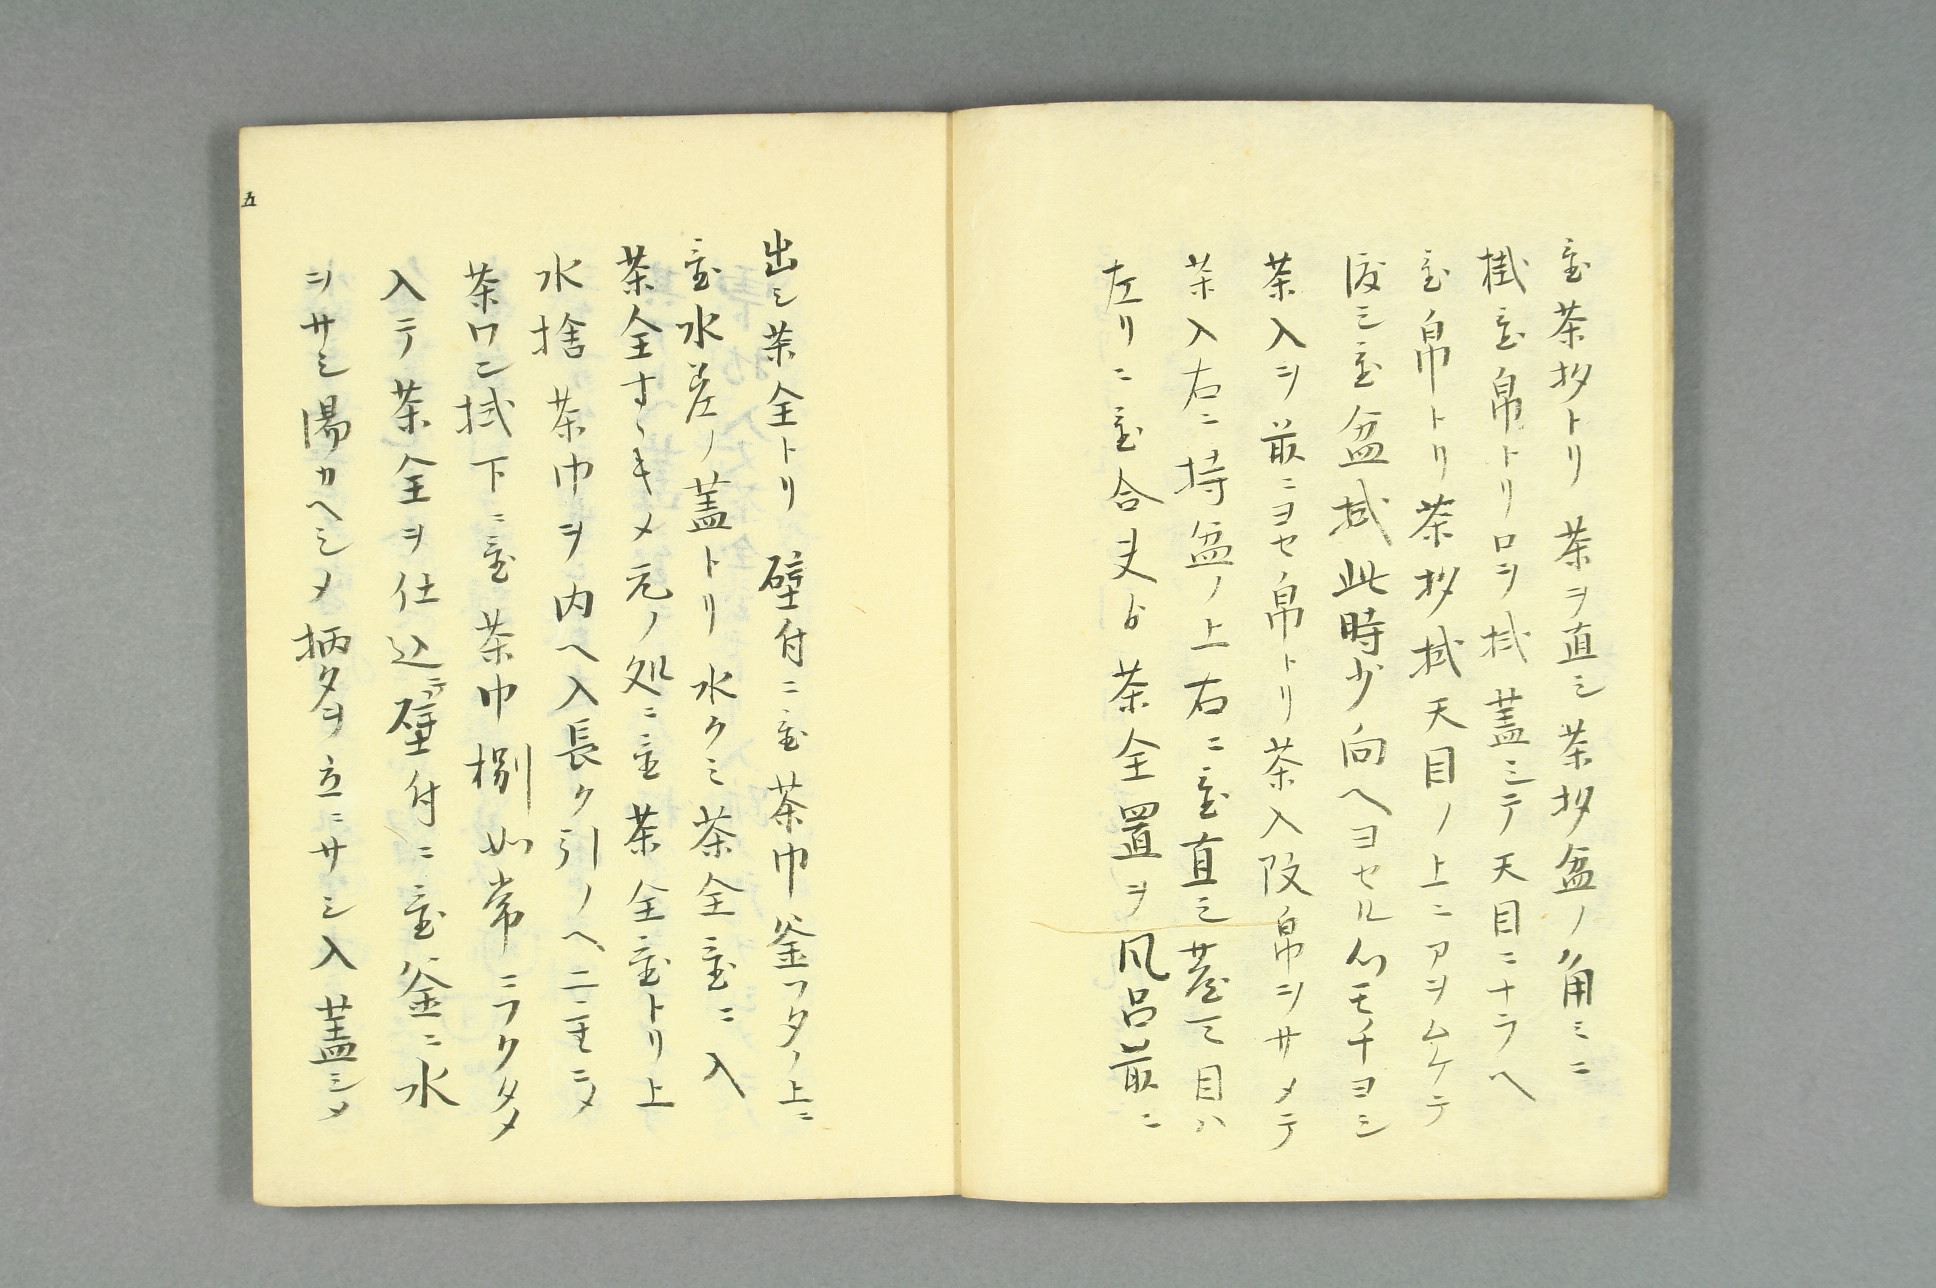 置茶杓トリ茶ヲ直シ茶杓盆ノ角ミニ
掛置帛トリ口ヲ拭蓋ミテ天目ニナラヘ
置帛トリ茶杓拭天目ノ上ニアヲムケテ
渡シ置盆拭此時少向ヘヨセル心モチヨシ
茶入ヲ前ニヨセ帛トリ茶入
帛ヲサメテ
茶入右ニ持盆ノ上右ニ置直シ
目ハ
左リニ置合
茶全置ヲ風呂前ニ
出シ茶全トリ壁付ニ置茶巾釜フタノ上ニ
置水差ノ蓋トリ水クミ茶全置ニ入
茶全すゝキメ元ノ処ニ置茶全置トリ上
水捨茶巾ヲ内ヘ入長ク引ノヘ二
茶口ニ拭下ニ置茶巾捌如常ニフクタメ
入テ茶全ヲ仕込テ壁付ニ置釜ニ水
ヲサシ湯カヘシメ柄タヲ立ニサシ入蓋シメ
五